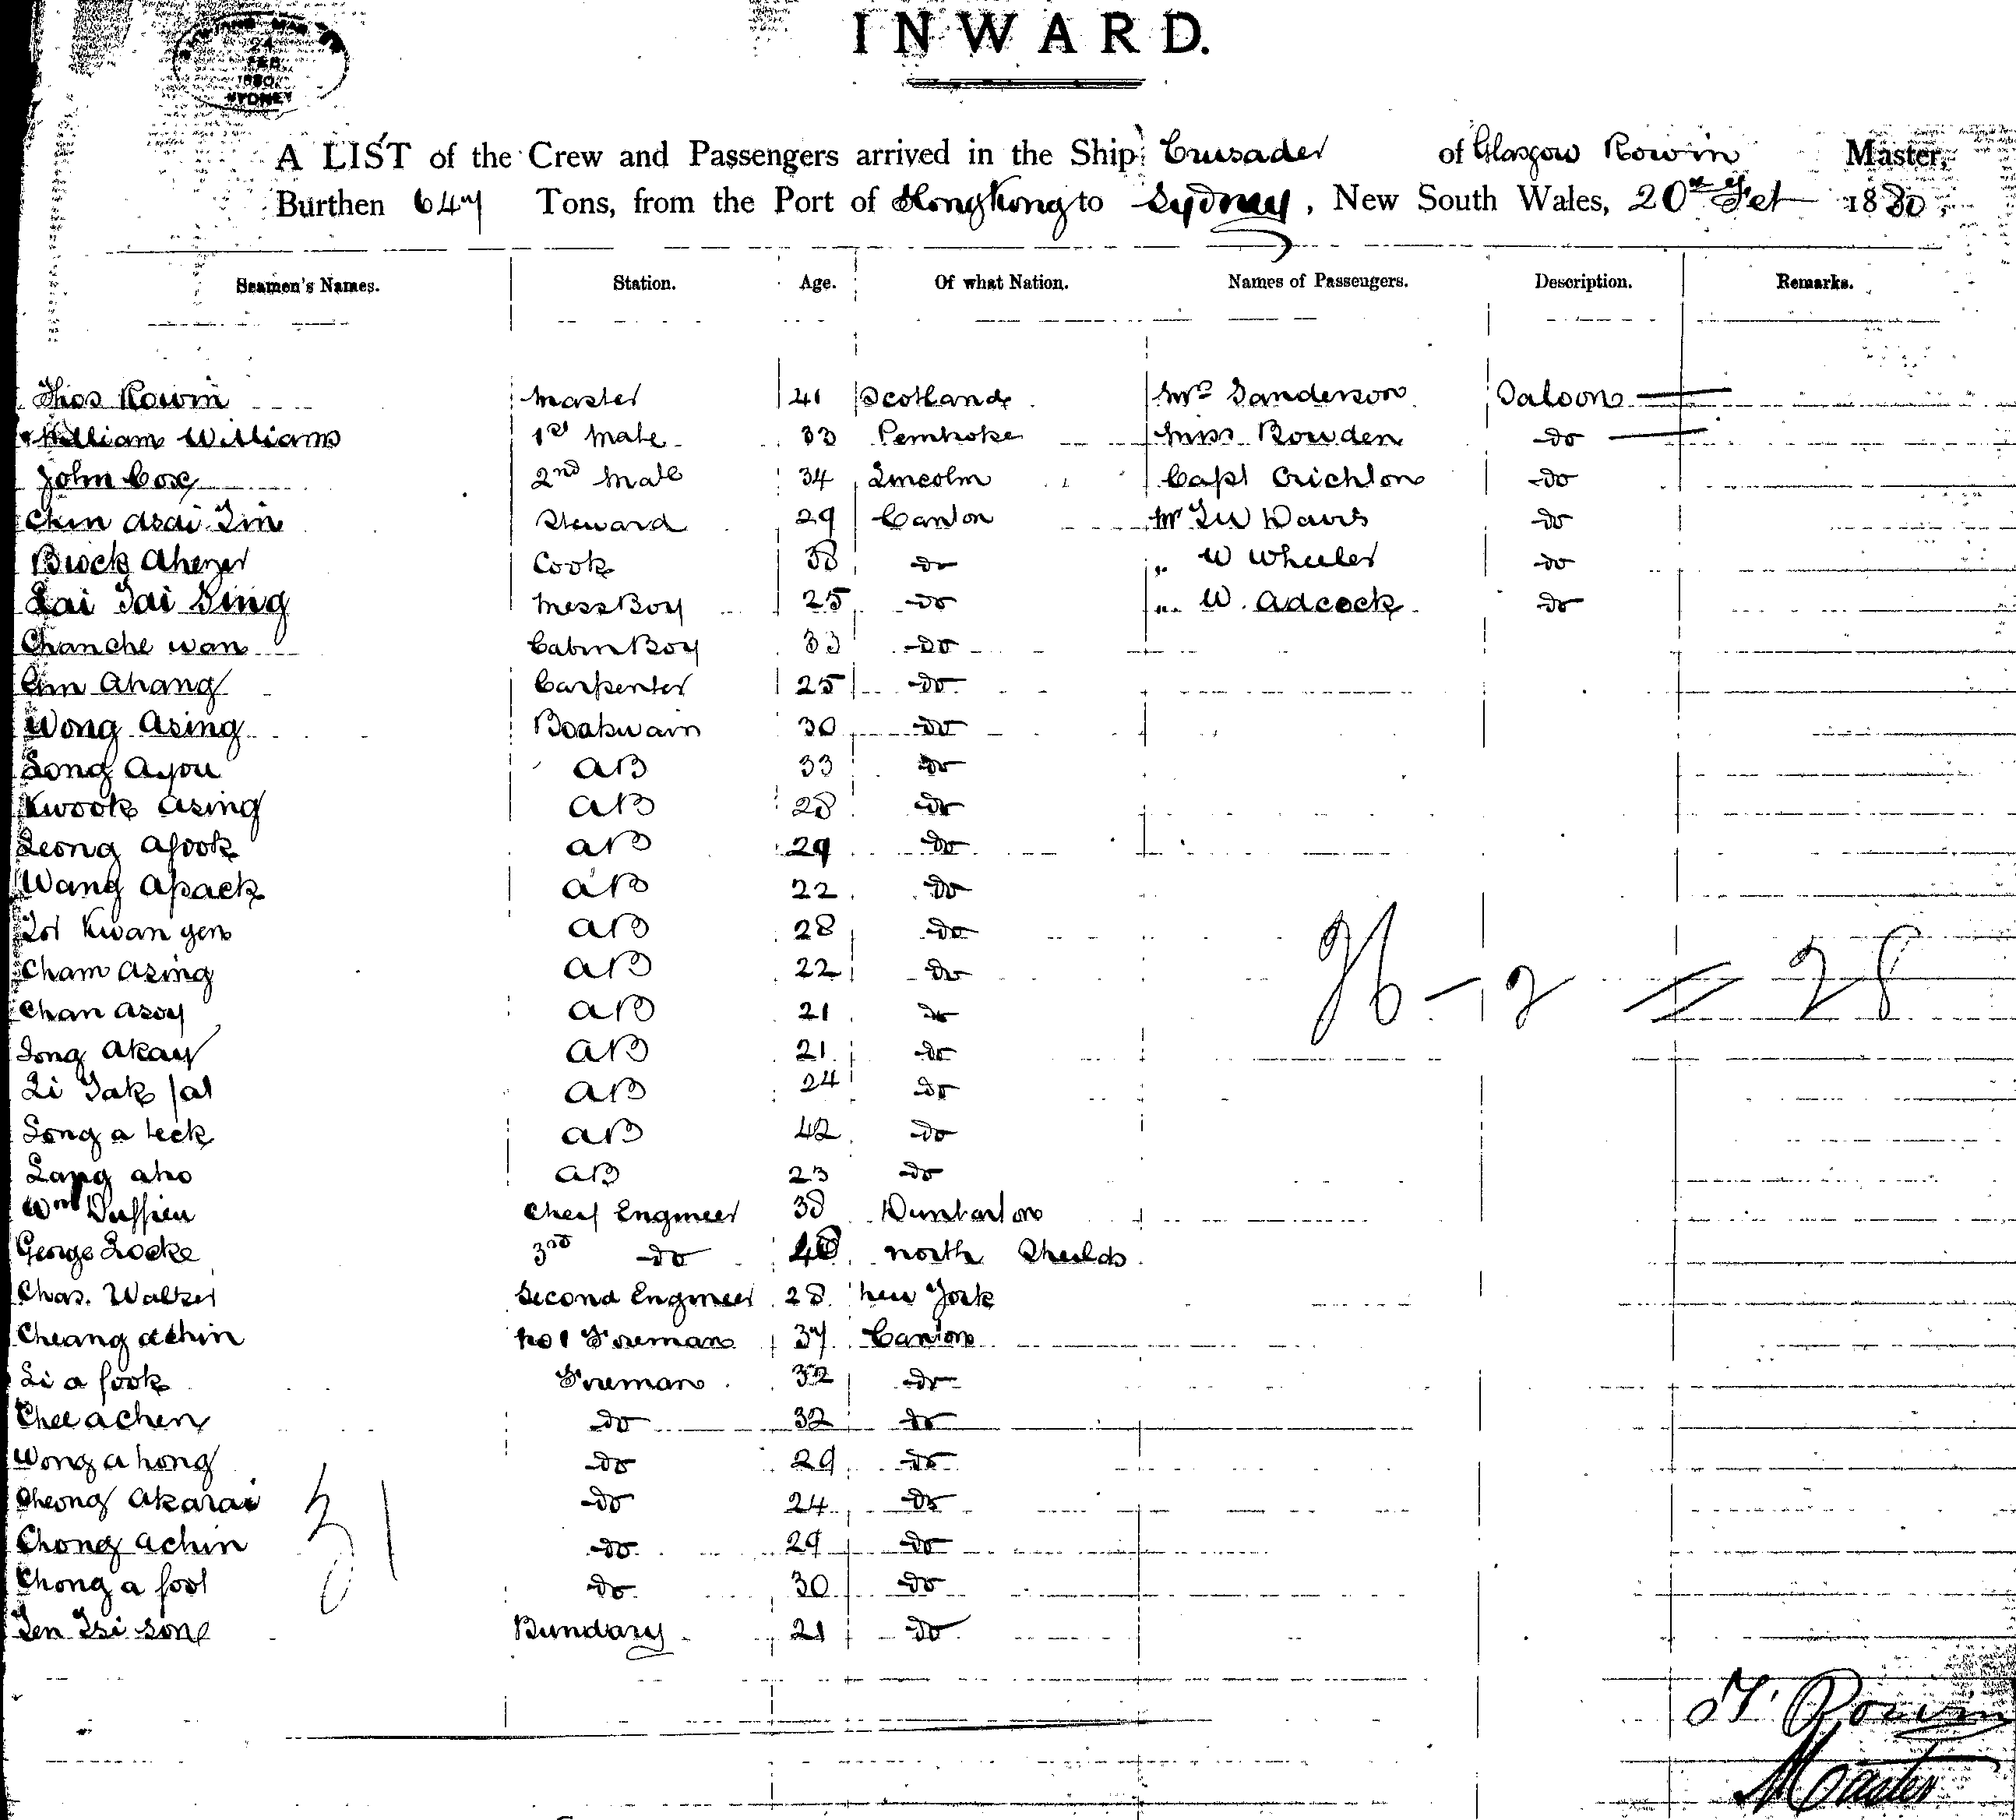 24
FEB
1880
SYDNEY
INWARD.
A LIST of the Crew and Passengers arrived in the Ship Crusader of Glasgow Rowin Master,
Burthen 647 Tons, from the Port of Hong Kong to Sydney, New South Wales, 20th Feb 1880.
Seamen's Names. Station. Age. Of what Nation. Names of Passengers. Description. Remarks.
Thos Rowin Master 41 Scotland Mrs Sanderson Saloon
William Williams 1st Mate 33 Pembroke Miss Bowden do
John Cox 2nd Mate 34 Lincoln Capt Crichton do
Chin Asai Lin Steward 29 Canton Mr Davis do
Cook 38 do " W Wheeler do
Lai Tai Sing Mess Boy 25 do " W. Adcock do
Chanche wan Cabin Boy 33 do
Ahang Carpenter 25 do
Wong Asing Boatswain 30 do
Song Ayou AB 33 do
Kwook Asing AB 28 do
Leong Afook AB 29 do
Wang Apack AB 22 do
Kwan yen AB 28 do
Cham Asing AB 22 do
Chan Asoy AB 21 do
Song Akay AB 21 do
Li Tak fat AB 24 do
Song a teck AB 42 do
Lang aho AB 23 do
Wm Cheif Engineer 38 Dunbarton
George Locke 3rd do North Shields
Chas. Walker Second Engineer 28 New York
Cheang Achin No 1 Fireman 37 Canton
Li a fook Fireman 32 do
Chee achen do 32 do
Wong a hong do 29 do
Cheong Akarai do 24 do
Chong Achin do 29 do
Chong a foot do 30 do
Bundary 21 do
31
= 28
T. Rowin
Master